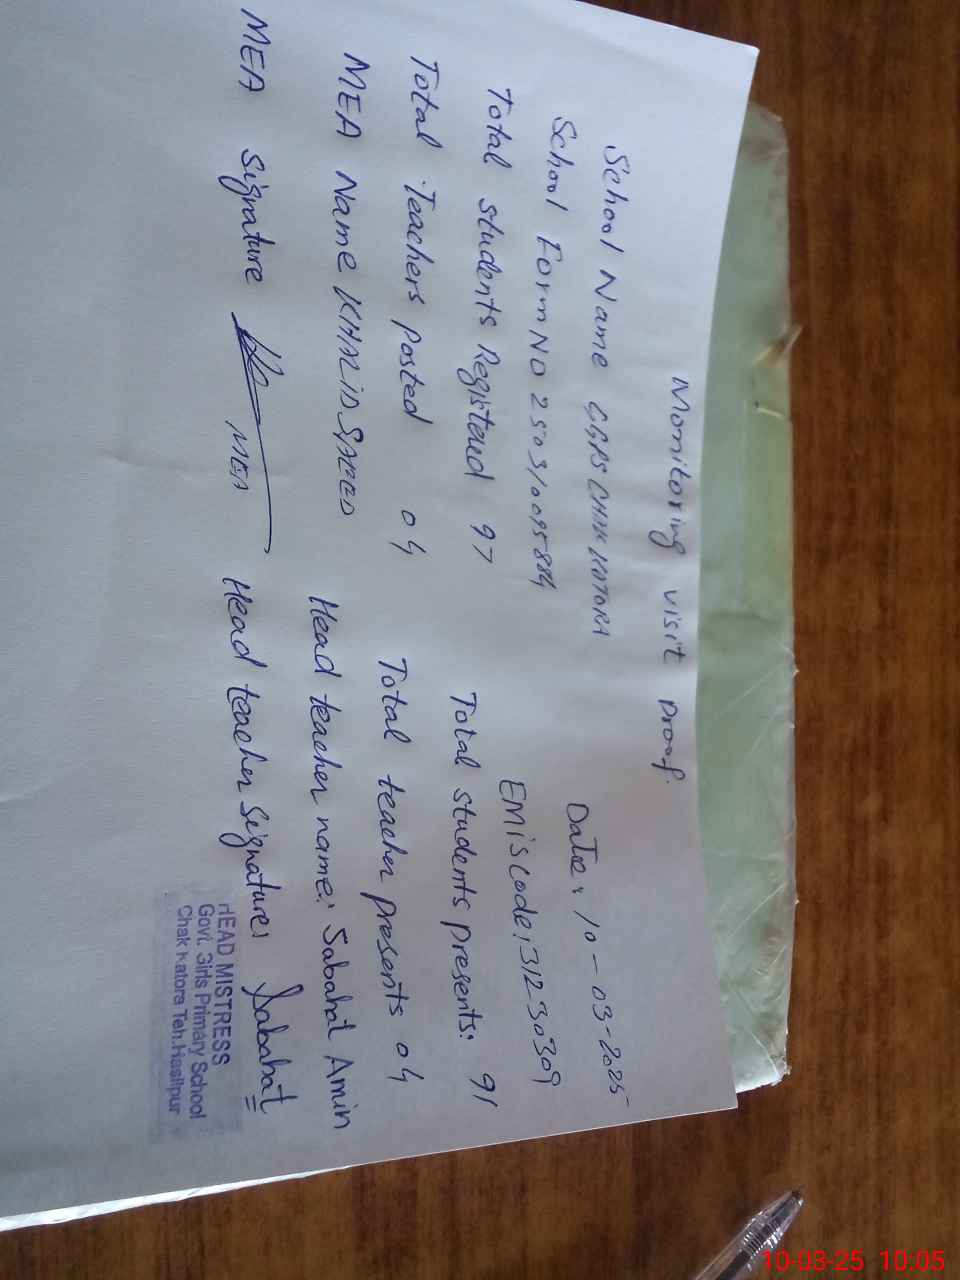 Monitoring visit proof.
School Name GGPS CHAK KATORA Date: 10-03-2025
School Form No 250310095884 EMiS code: 31230309
Total students Registered 97 Total students presents: 91
Total Teachers posted 04 Total teacher presents 04
MEA Name KHALiD SAEED Head teacher name: Sabahat Amin
MEA signature MEA Head teacher signature: Sabahat
HEAD MISTRESS
Govt. Girls Primary School
Chak Katora Teh.Hasilpur
10-03-25 10:05